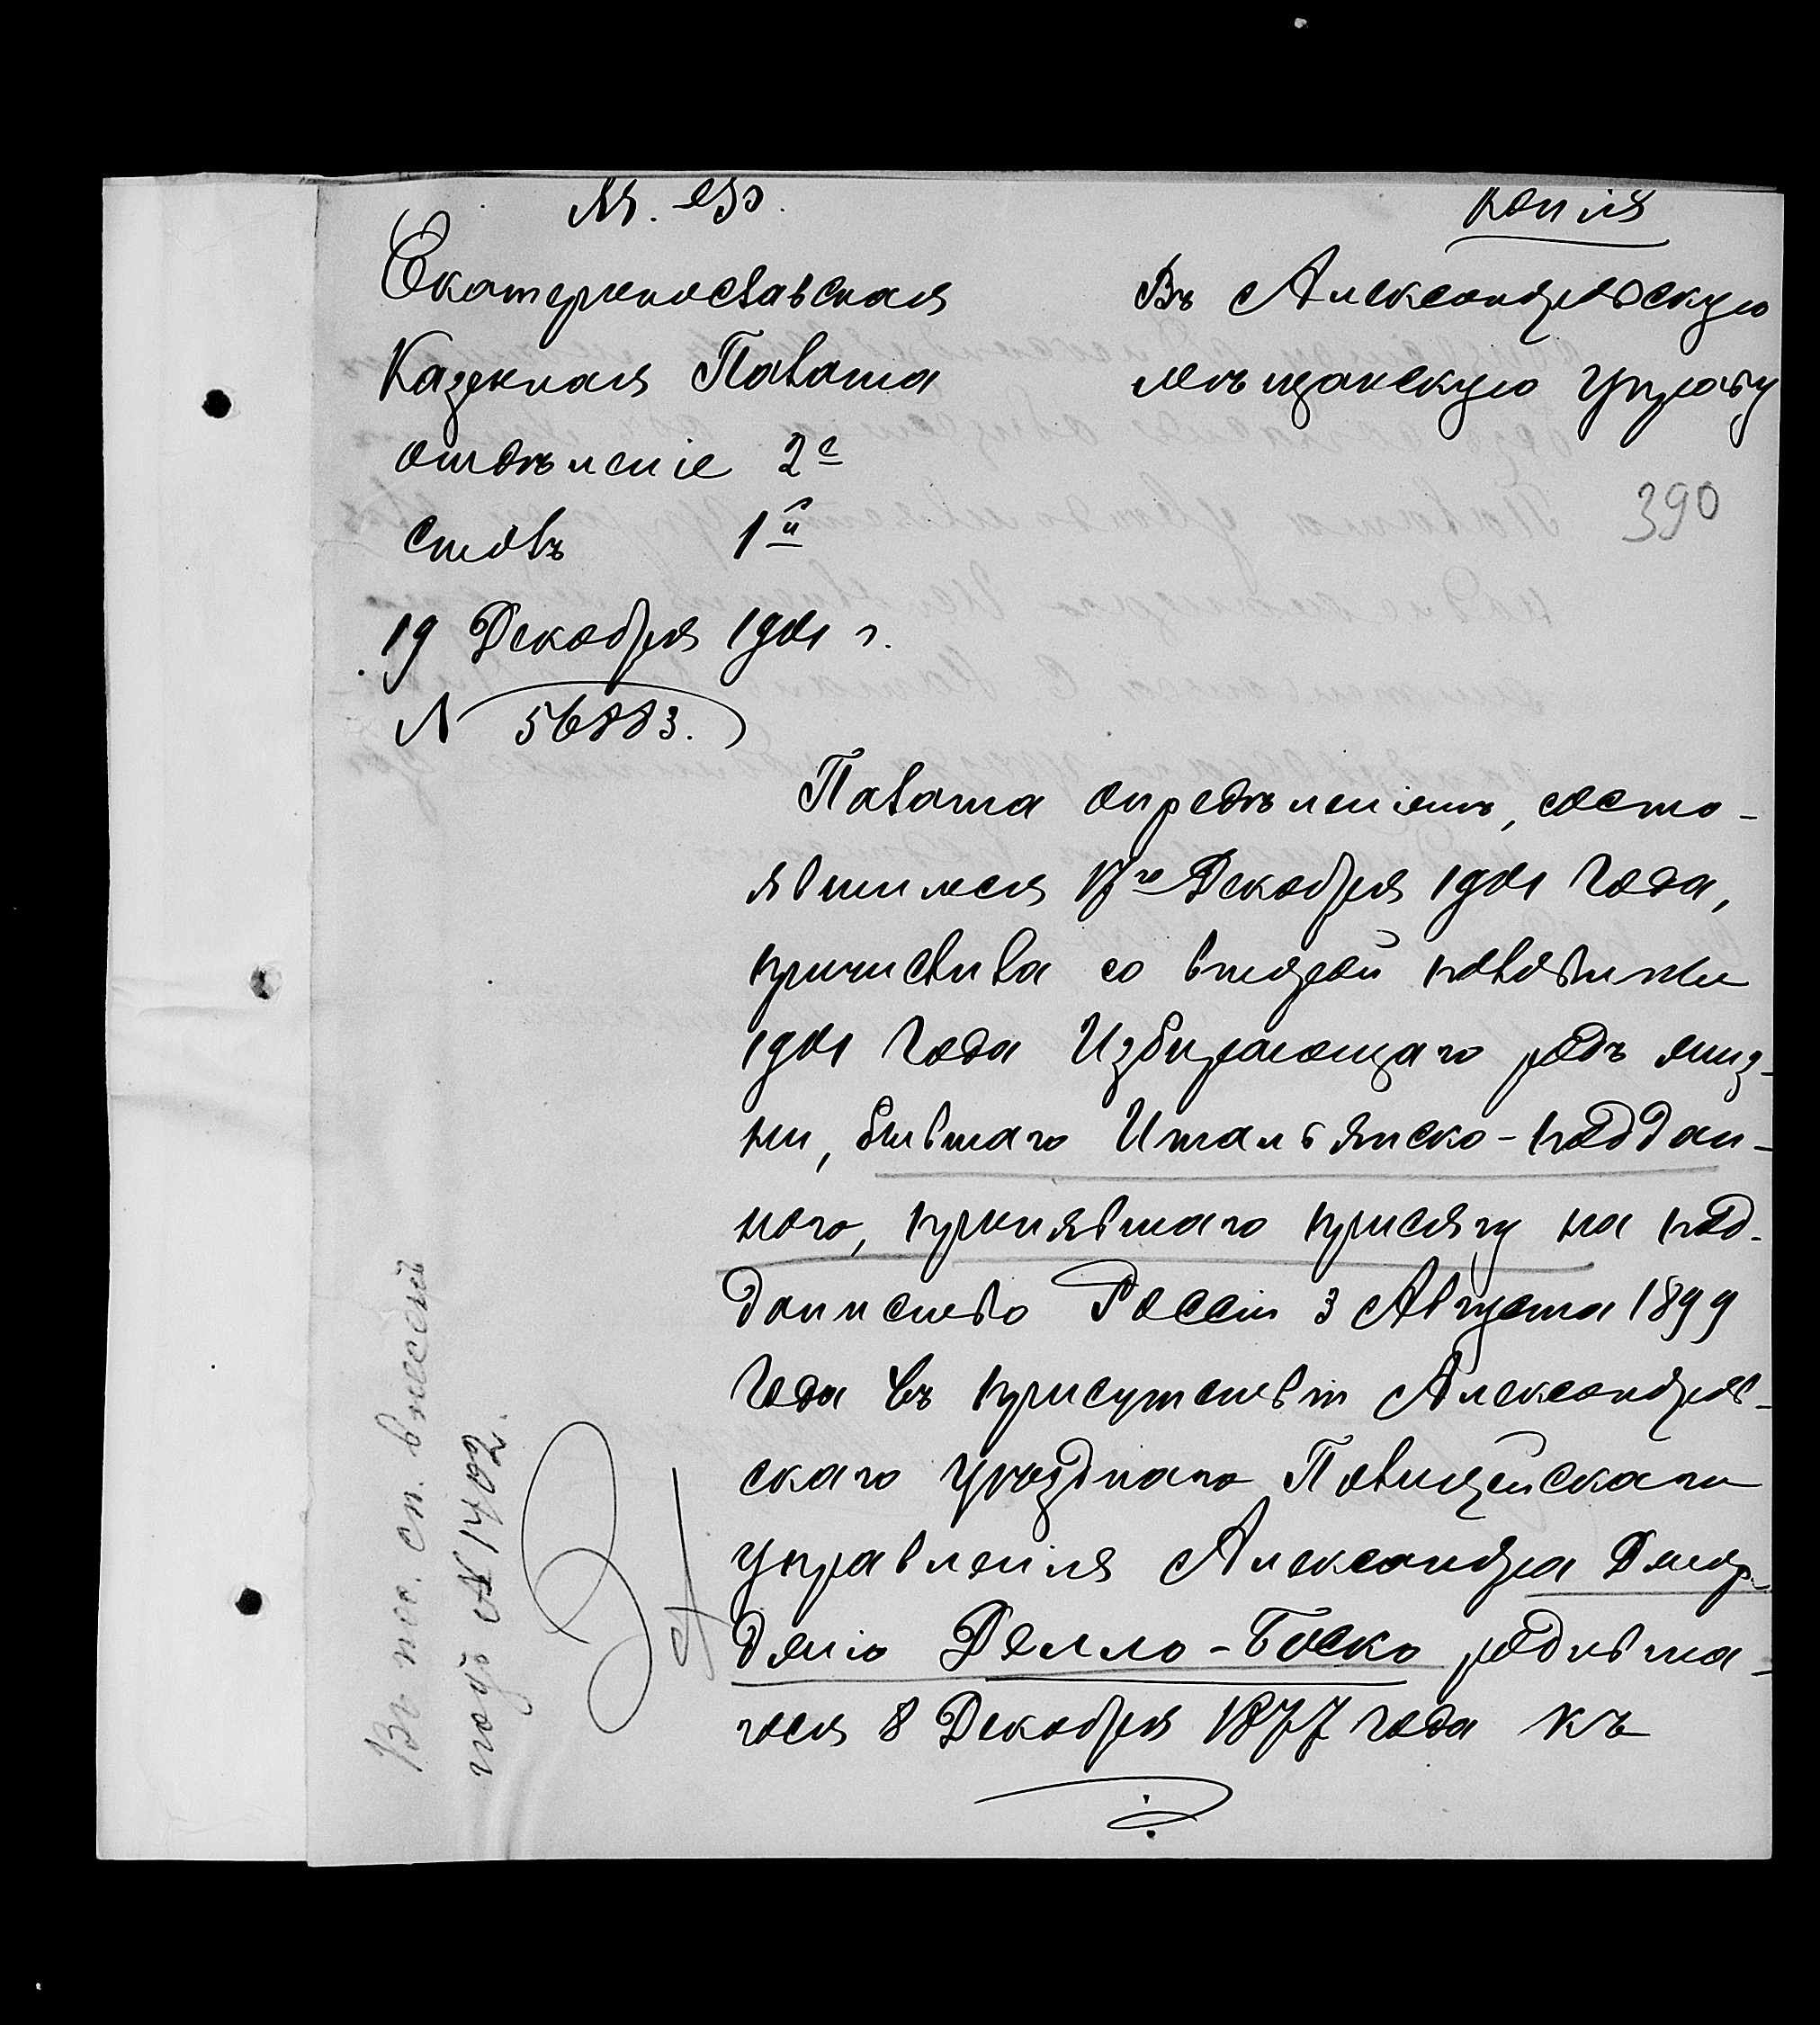 М. В. Д.
Копія
Екатеринославская
Казенная Палата
отдѣленіе 2е
столъ 1й
19 Декабря 1901 г.
N 56883.
Въ Александровскую
мѣщанскую управу
390
Палата опредѣленіемъ, состо-
явшимся 17го Декабря 1901 года,
причислила со второй половины
1901 года Избирающаго родъ жиз-
ни, бывшаго Итальянско-поддан-
ного, принявшаго присягу на под-
данство Россіи 3 Августа 1899
года въ присутствіи Александров-
скаго уѣзднаго Полицейскаго
управленія Александра Джор-
дяніо Делло-Боско родивша-
гося 8 Декабря 1877 года къ
Въ пос. сп. внесенъ
подъ N 1702.